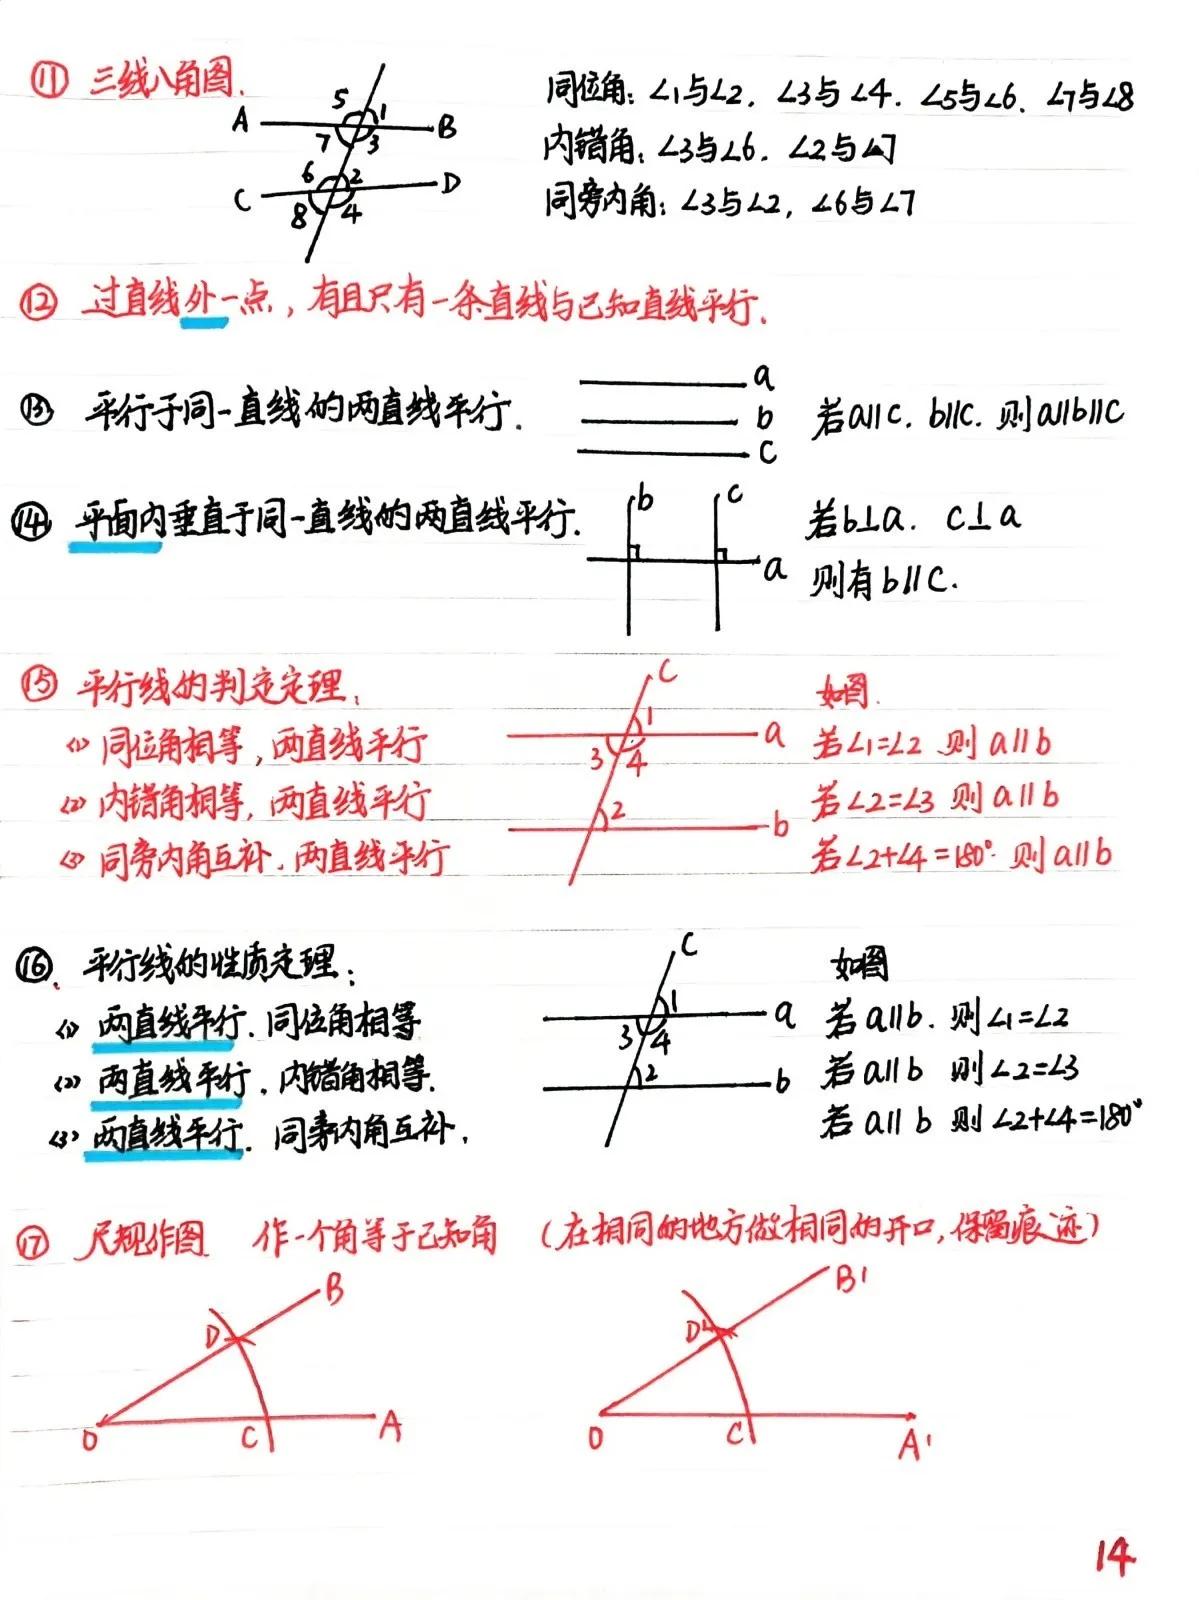 ⑪ 三线八角图.
同位角: ∠1与∠2, ∠3与∠4. ∠5与∠6. ∠7与∠8
内错角: ∠3与∠6. ∠2与∠7
同旁内角: ∠3与∠2, ∠6与∠7
5 1
A B
7 3
6 2
C D
8 4
⑫ 过直线外一点, 有且只有一条直线与已知直线平行.
⑬ 平行于同一直线的两直线平行.
a
b
c
若a∥c. b∥c. 则a∥b∥c
⑭ 平面内垂直于同一直线的两直线平行.
b c
a
若b⊥a. c⊥a
则有b∥c.
⑮ 平行线的判定定理:
<1> 同位角相等, 两直线平行
<2> 内错角相等, 两直线平行
<3> 同旁内角互补. 两直线平行
c
1
a
3 4
2
b
如图.
若∠1=∠2 则 a∥b
若∠2=∠3 则 a∥b
若∠2+∠4=180°. 则 a∥b
⑯. 平行线的性质定理:
<1> 两直线平行. 同位角相等
<2> 两直线平行, 内错角相等.
<3> 两直线平行. 同旁内角互补.
c
1
a
3 4
2
b
如图
若 a∥b. 则∠1=∠2
若 a∥b 则∠2=∠3
若 a∥b 则∠2+∠4=180°
⑰ 尺规作图 作一个角等于已知角 (在相同的地方做相同的开口, 保留痕迹)
B
D
O C A
B'
D'
O C A'
14